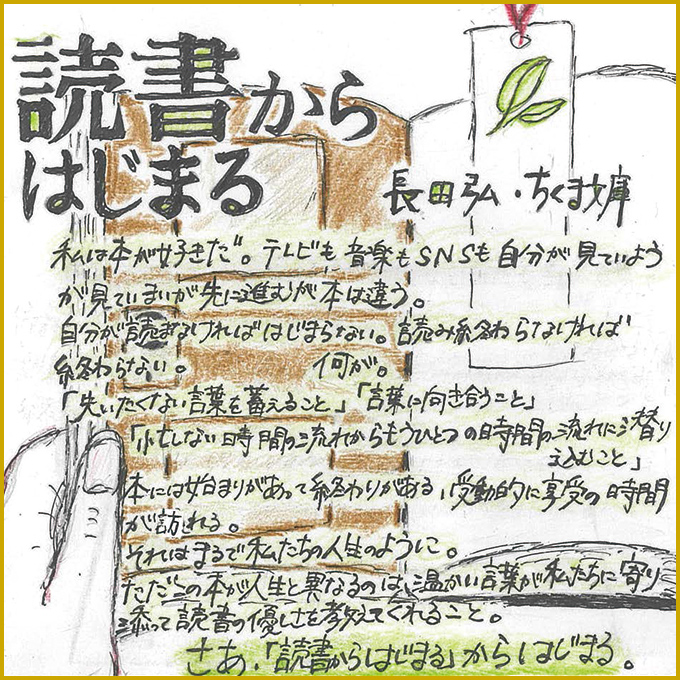 読書から
はじまる
長田弘・ちくま文庫
私は本が好きだ。テレビも音楽もSNSも自分が見ていよう
が見ていまいが先に進むが本は違う。
自分が読まなければはじまらない。読み終わらなければ
終わらない。 何が。
「失いたくない言葉を蓄えること」「言葉に向き合うこと」
しない時間の流れからもうひとつの時間の流れに滑り
込むこと」
本には始まりがあって終わりがある、受動的に享受の時間
が訪れる。
それはまるで私たちの人生のように。
ただこの本が人生と異なるのは、温かい言葉が私たちに寄り
添って読書の優しさを教えてくれること。
さあ、「読書からはじまる」からはじまる。